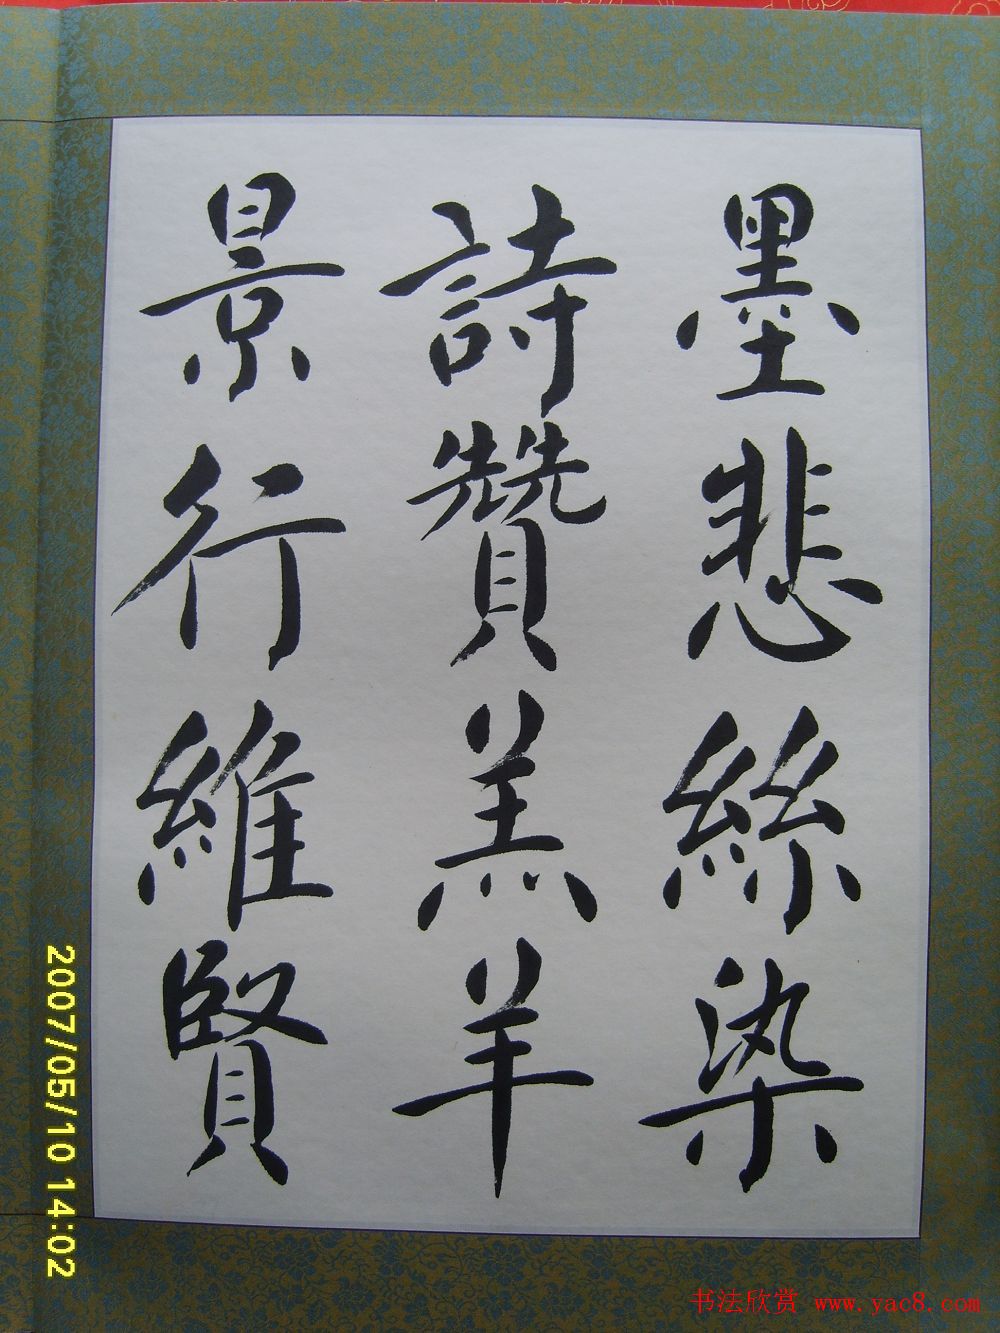 墨悲絲染
詩贊羔羊
景行維賢
2007/05/10 14:02
书法欣赏 www.yac8.com